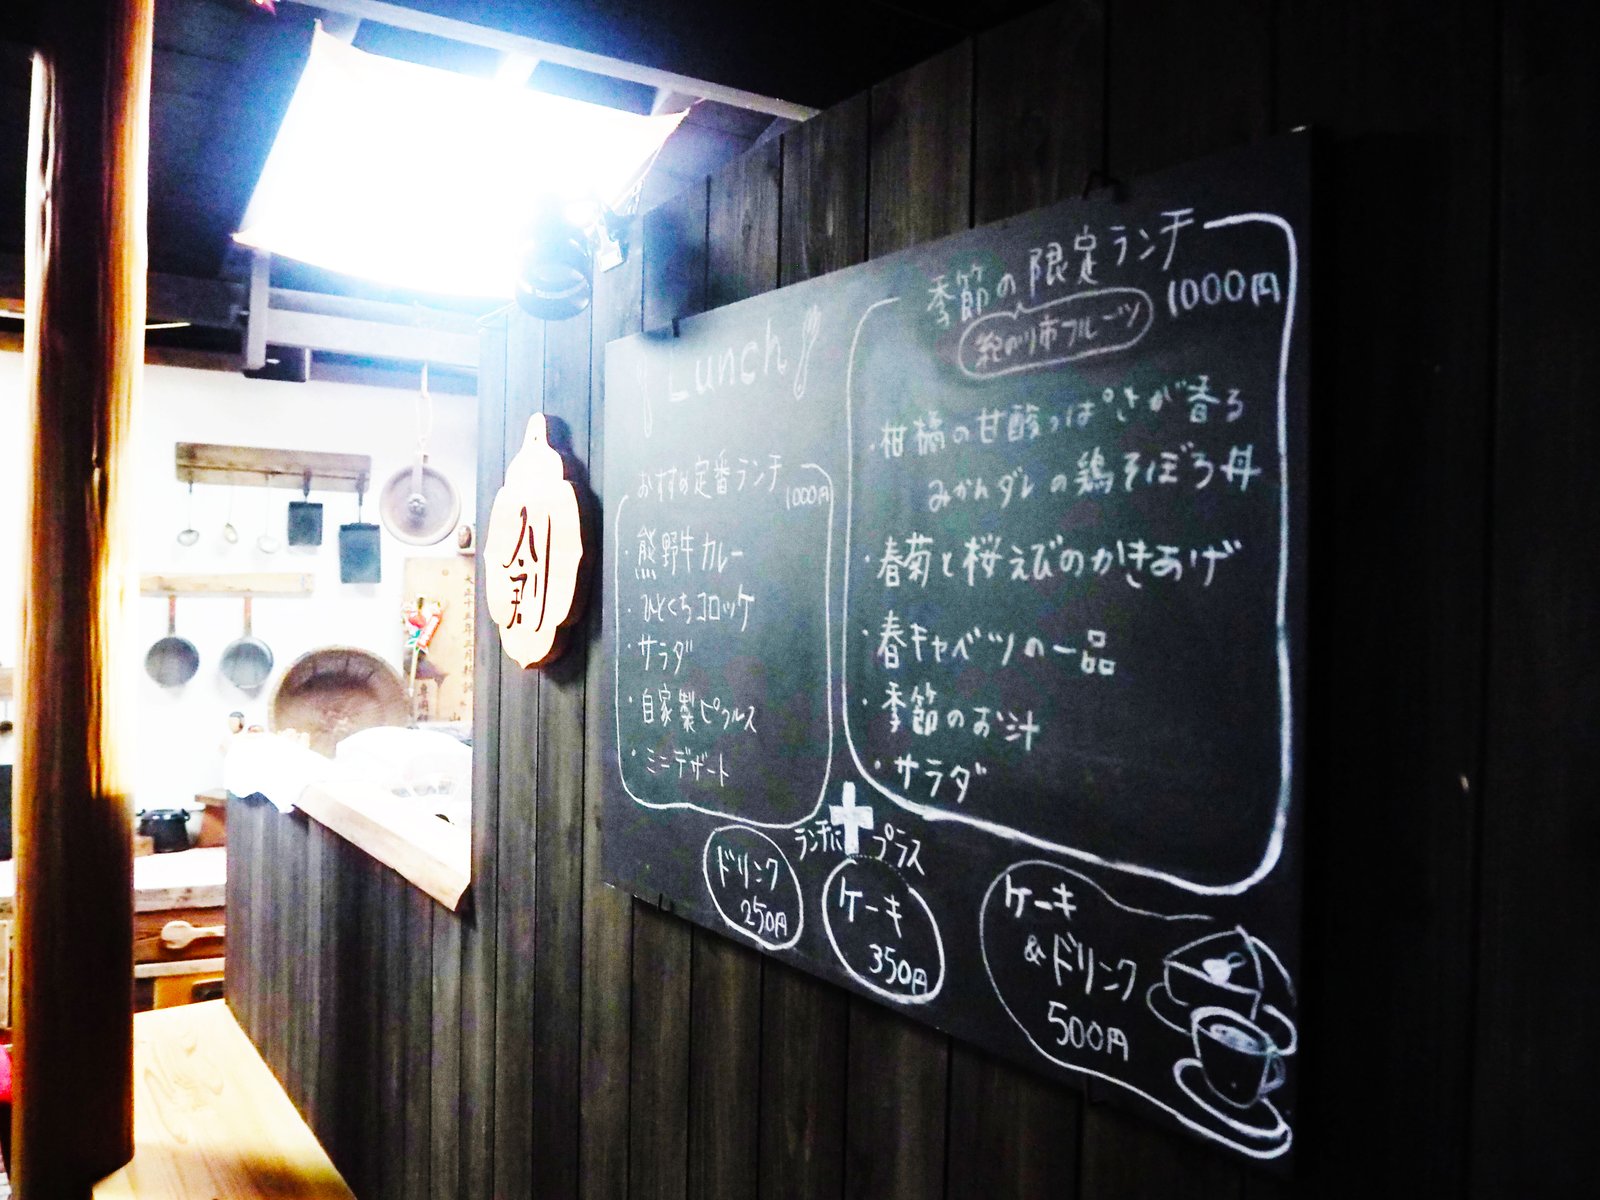 創
Lunch
おすすめ定番ランチ
1000円
・熊野牛カレー
・ひとくちコロッケ
・サラダ
・自家製ピクルス
・ミニデザート
季節の限定ランチ
1000円
紀の川市フルーツ
・柑橘の甘酸っぱさが香る
みかんダレの鶏そぼろ丼
・春菊と桜えびのかきあげ
・春キャベツの一品
・季節のお汁
・サラダ
ランチに+プラス
ドリンク
250円
ケーキ
350円
ケーキ
&ドリンク
500円